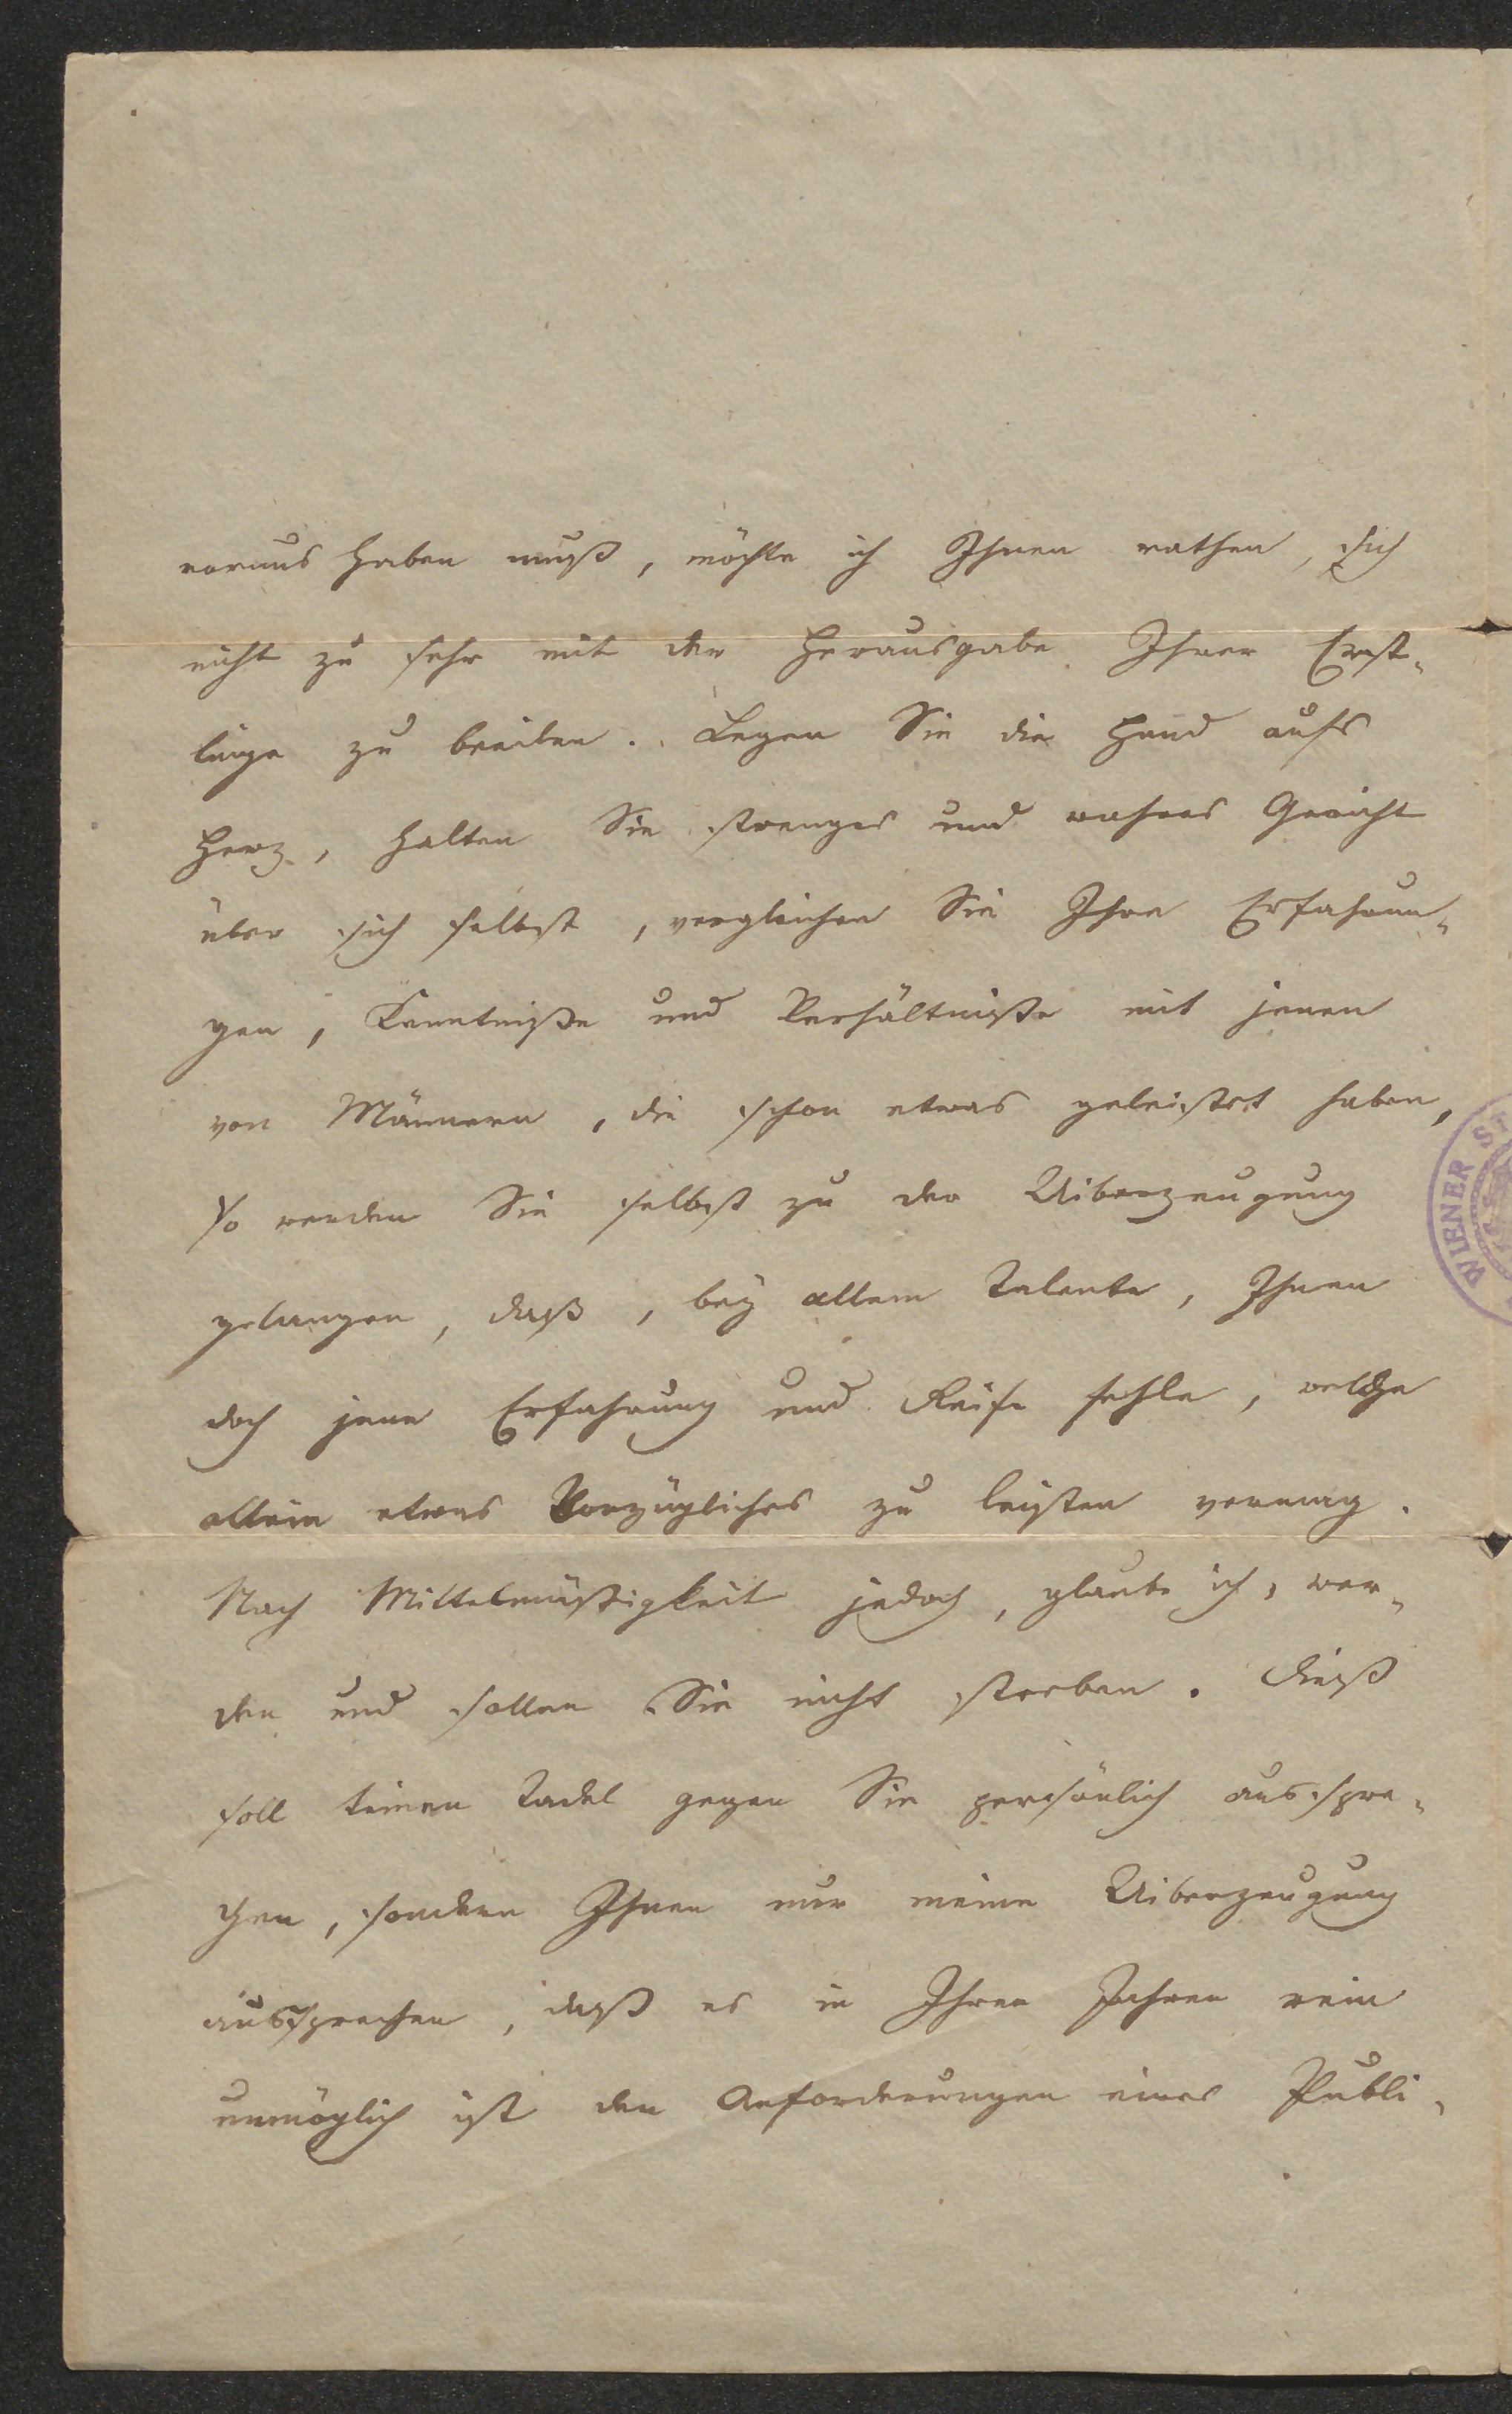 voraus haben muß, möchte ich Ihnen rathen, sich
nicht zu sehr mit der Herausgabe Ihrer Erst-
linge zu beeilen. Legen Sie die Hand aufs
Herz, halten Sie strenges und wahres Gericht
über sich selbst, vergleichen Sie Ihre Erfahrun-
gen, Kenntniße und Verhältniße mit jenen
von Männern, die schon etwas geleistet haben,
so werden Sie selbst zu der Uiberzeugung
gelangen, daß, bey allem Talente, Ihnen
doch jene Erfahrung und Reife fehle, welche
allein etwas Vorzügliches zu leisten vermag.
Nach Mittelmäßigkeit jedoch, glaube ich, wer-
den und sollen Sie nicht streben. Dieß
soll keinen Tadel gegen Sie persönlich ausspre-
chen, sondern Ihnen nur meine Uiberzeugung
aussprechen, daß es in Ihren Jahren rein
unmöglich ist den Anforderungen eines Publi-
WIENER ST